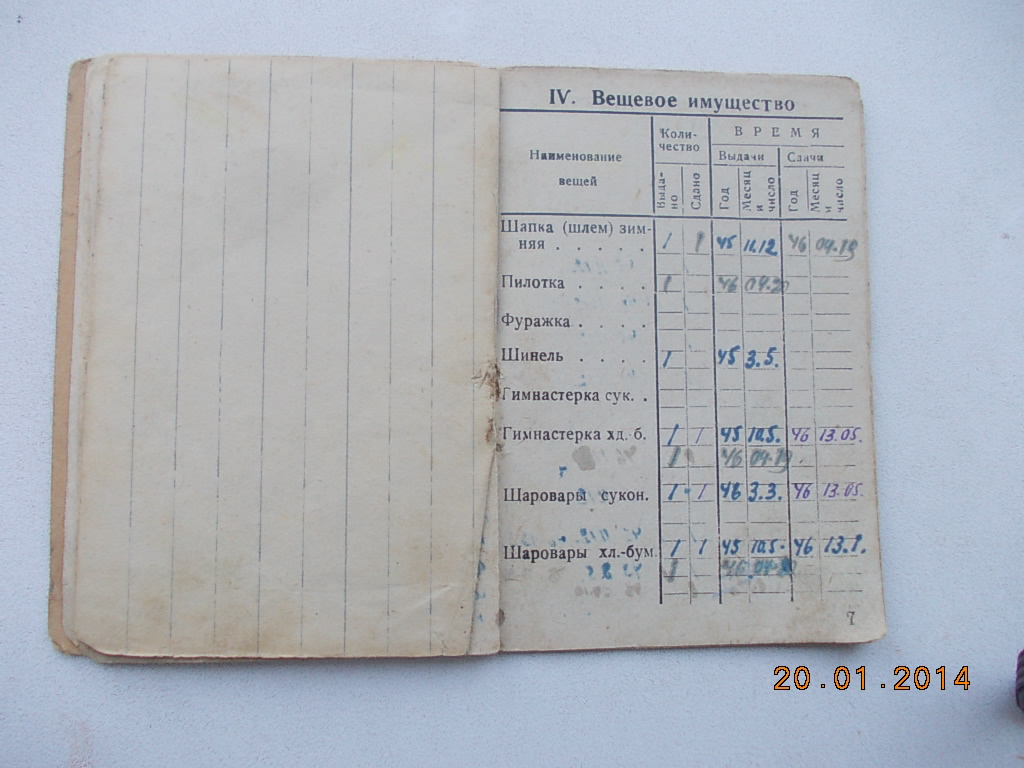 IV. Вещевое имущество
Наименование вещей
Коли-
чество
ВРЕМЯ
Выдачи Сдачи
Выда-
но
Сдано
Год
Месяц
и
число
Год
Месяц
и
число
Шапка (шлем) зим-
няя . . . . . 1 1 45 11.12 46 04.19
Пилотка . . . . 1 46 04.20
Фуражка . . . .
Шинель . . . . 1 45 3.5.
Гимнастерка сук. .
Гимнастерка хл. б. 1 1 45 10.5. 46 13.05.
1 46 04.19
Шаровары сукон. 1 1 46 3.3. 46 13.05.
Шаровары хл.-бум. 1 1 45 10.5. 46 13.1.
1 46
7
20.01.2014